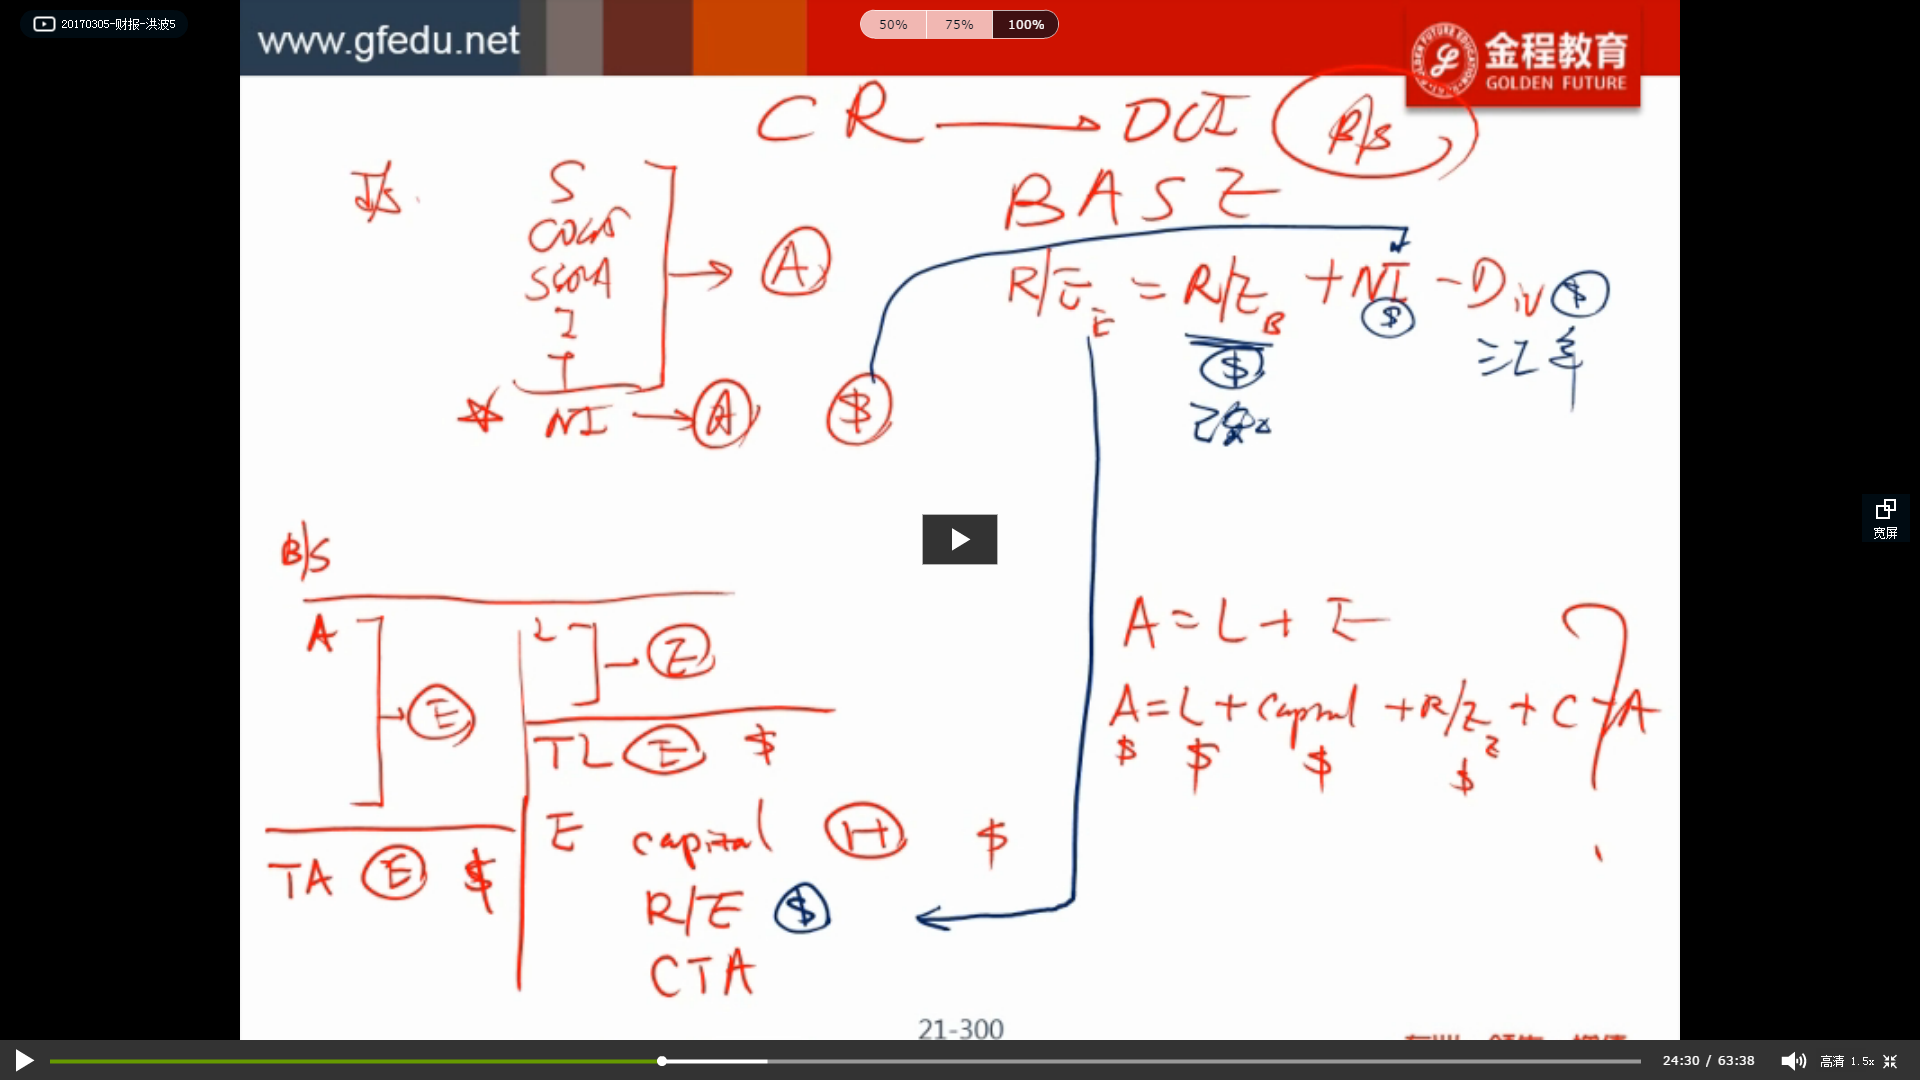 20170305-财报-洪波5
50% 75% 100%
www.gfedu.net
金程教育
GOLDEN FUTURE
CR → OCI B/S
I/S
S
COGS
SG&A
I
T
NI → A $
A
BASE
R/E_E = R/E_B + NI - Div $
$ $
已知 汇率
B/S
A
E
L
E
TL E $
TA E $
E capital H $
R/E $
CTA
A = L + E
A = L + Capital + R/E + CTA
$ $ $ $
?
宽屏
21-300
24:30 / 63:38
高清 1.5x